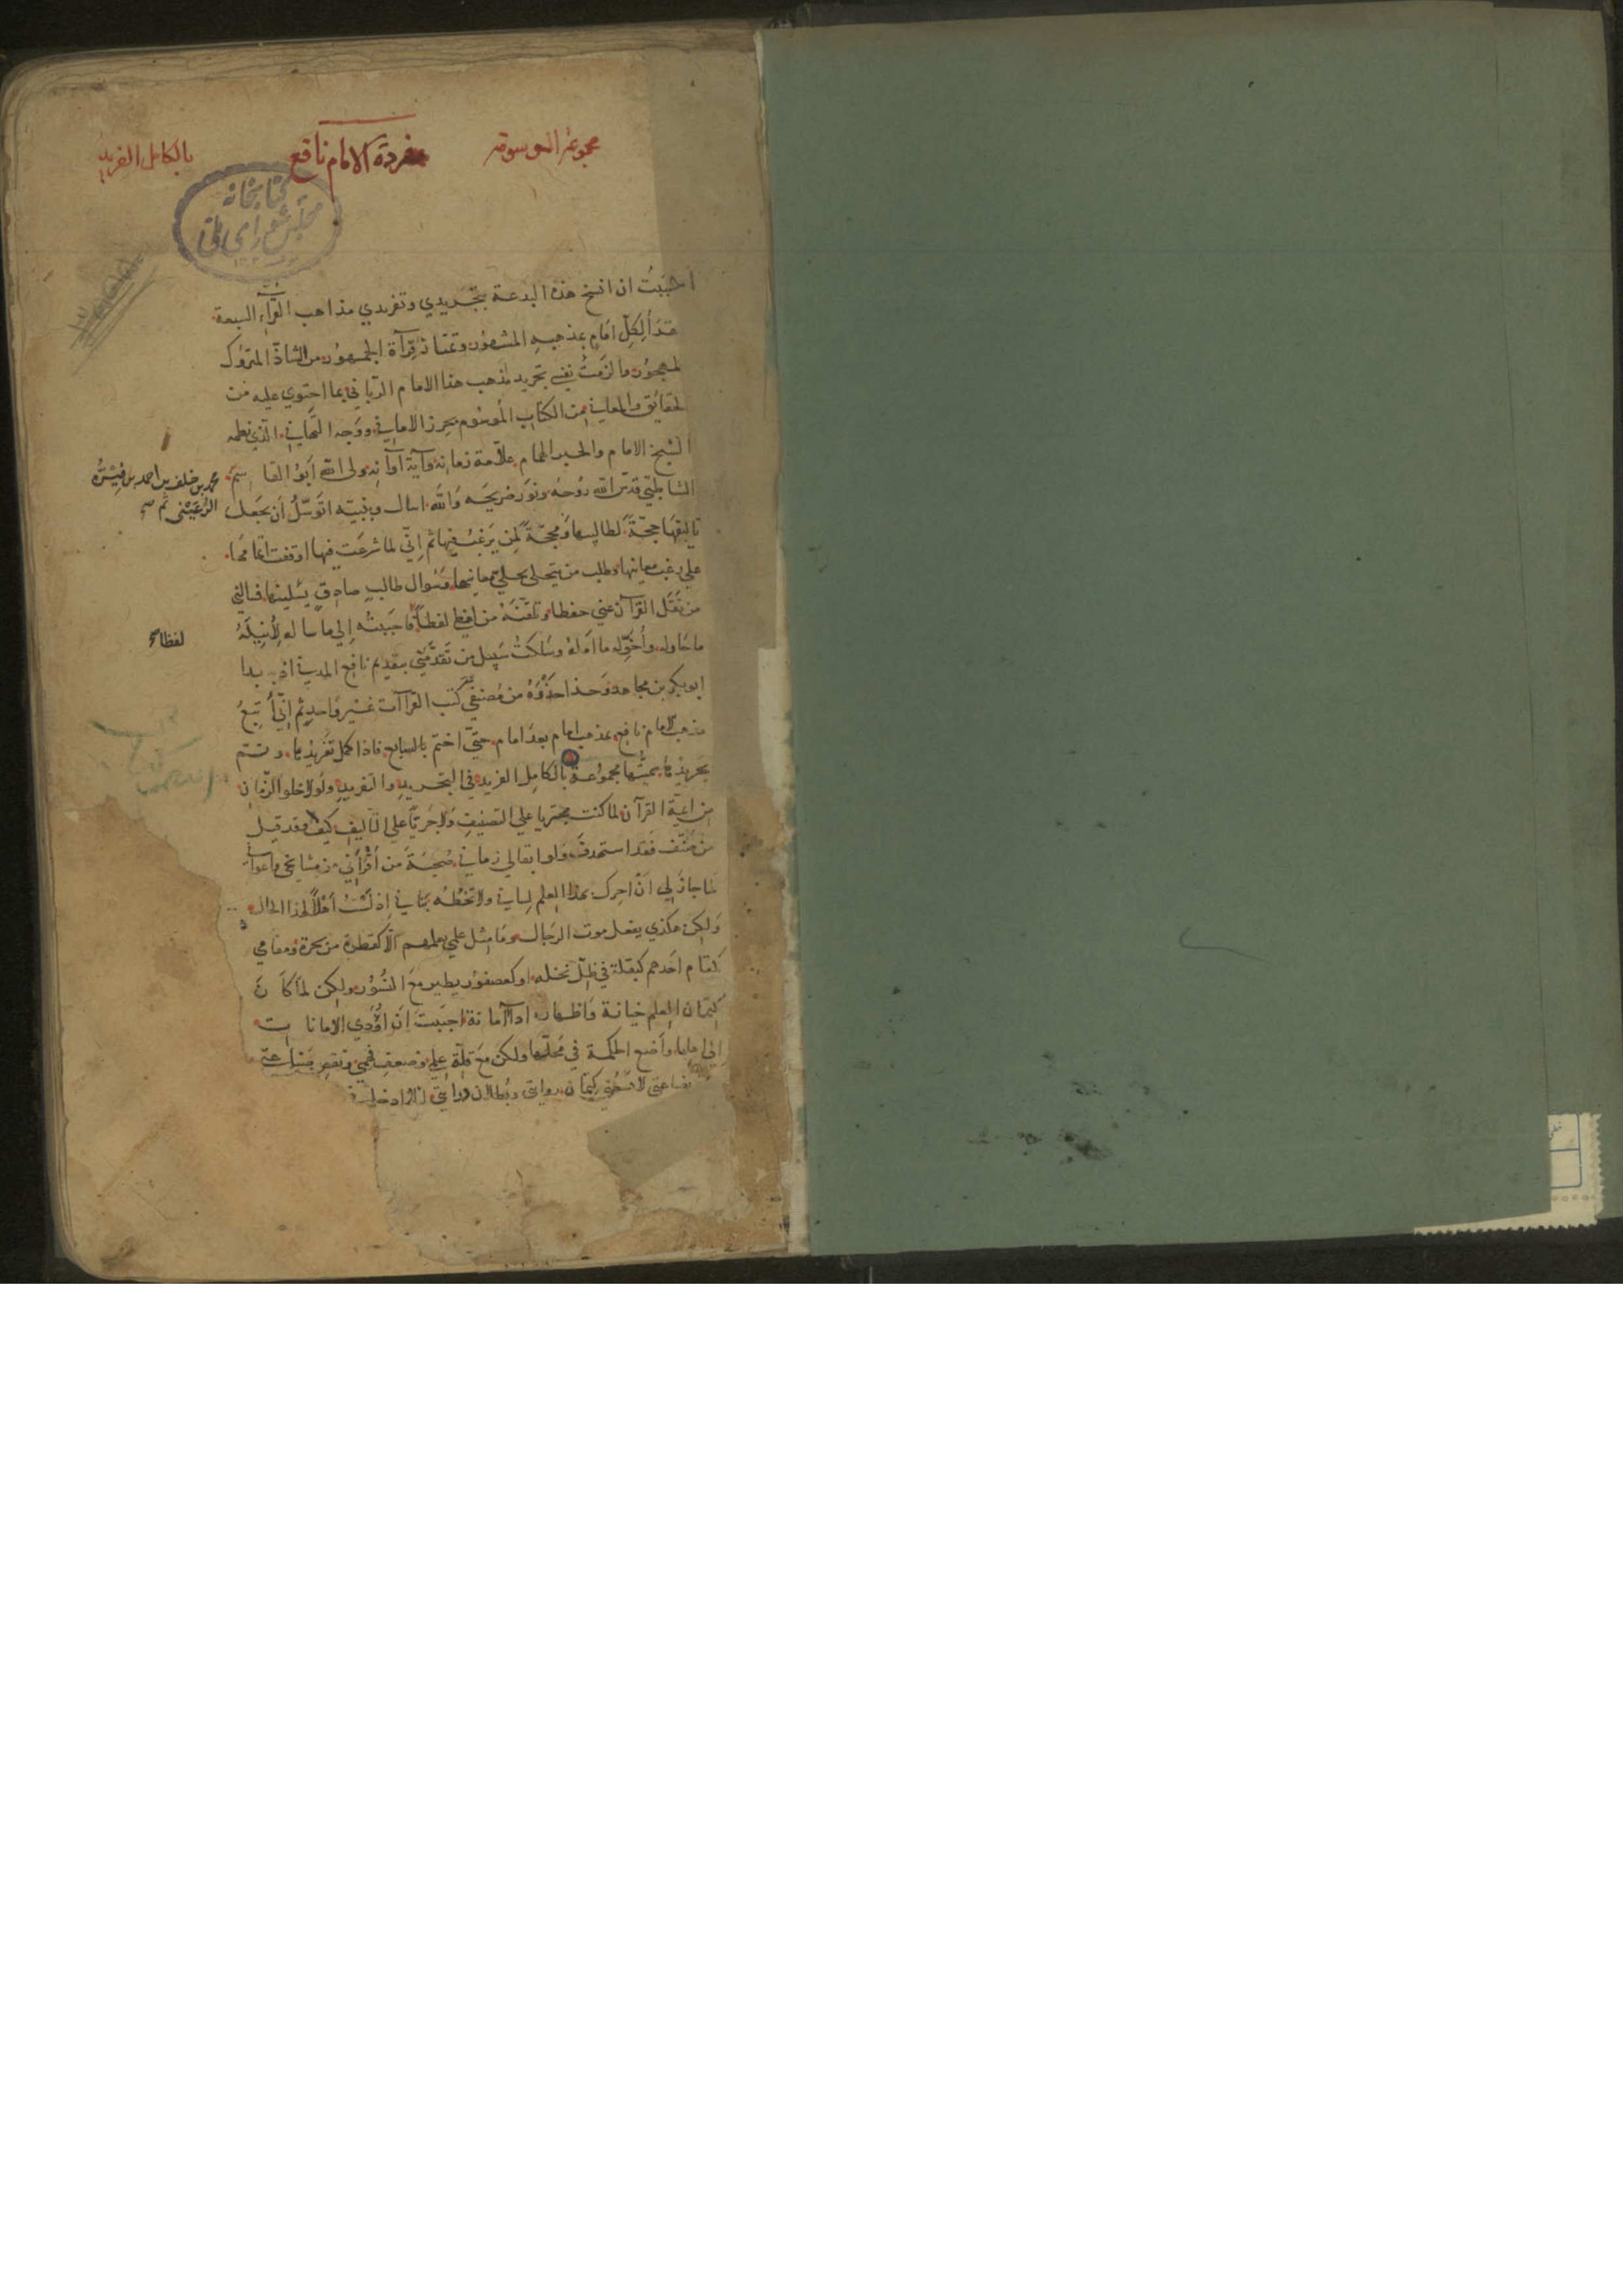 مجموعة الموسومة
مفردة الامام نافع
بالكامل الفريد
كتابخانه
مجلس شورای ملی
احببت ان انسخ هذه البدعة بتجريدي وتفريدي مذاهب القرآء السبعة
لكل امام بمذهبه المشهور وتمتاز قرآة الجمهور من الشاذ المتروك
المهجور فالزمت نفسي تجريد مذهب هذا الامام الرباني بما احتوي عليه من
الحقائق والمعاني من الكتاب الموسوم بحرز الاماني ووجه التهاني الذي نظمه
الشيخ الامام والحبر الهمام علامة زمانه وآية اوانه ولى الله ابو القاسم
محمد بن خلف بن احمد بن فيرُّه
الرعيني ثم صح
الشاطبي قدس الله روحه ونور ضريحه والله اسال وبنبيه اتوسل أن يجعل
تاليفها حجة لطالبها ومحجة لمن يرغب فيها ثم اني لما شرعت فيها اوقفت اتمامها
علي رغب معانيها وطلب من يتحلى بحلي معانيها وسوال طالب صادق فسالني
من نقل القرآن عني حفظا وتلقنه من لفظا فاجبته إلي ما ساله لأنيله
لفظا صح
ما حاوله وأخوله ما امله وسلكت سبيل من تقدمني بتقديم نافع المدني اذ به بدا
ابو بكر بن مجاهد وحذا حذوه من مصنفي كتب القراآت غير واحد ثم اني أتبع
مذهب الامام نافع بمذهب امام بعد امام حتي اختم بالسابع فاذا كمل تفريدها وتم
تجريدها سميتها مجموعة بالكامل الفريد في التجريد والتفريد ولولا خلو الزمان
من ايمة القرآن لما كنت مجتريا علي التصنيف ولا جريا علي التاليف كيف وقد قيل
من صنف فقد استهدف ولو ابقالي زماني صحبة من أقرأني من مشايخي واعواني
لما جاز لي ان احرك بهذا العلم لساني ولا تخطه بناني إذ لست أهلا لهذا الحال
ولكن هكذي يفعل موت الرجال وما مثل علي بعلمهم الا كقطرة من بحرة ومقامي
كمقام احدهم كبقلة في ظل نخله او كعصفور يطير مع النسور ولكن لما كان
كتمان العلم خيانة واظهاره ادآ امانة احببت أن اؤدي الامانات
الي اهلها وأضع الحكمة في محلها ولكن مع قلة علمي وضعف فهمي ونقص بضاعتي
كتمان روايتي وبطلان درايتي